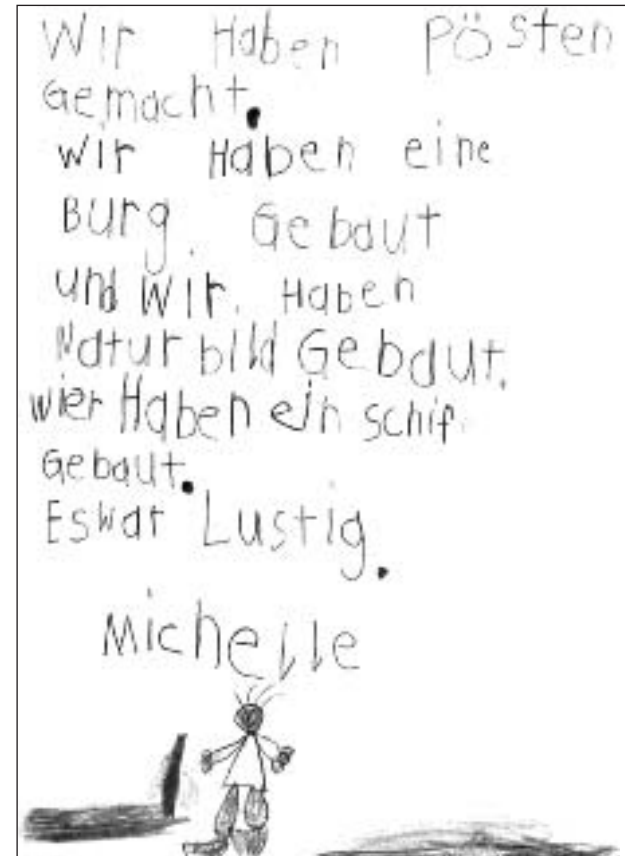 Wir Haben Pösten
Gemacht.
wir Haben eine
Burg. Gebaut
und Wir. Haben
Naturbild Gebaut.
wier Haben ein schif.
Gebaut.
Eswar Lustig.
Michelle